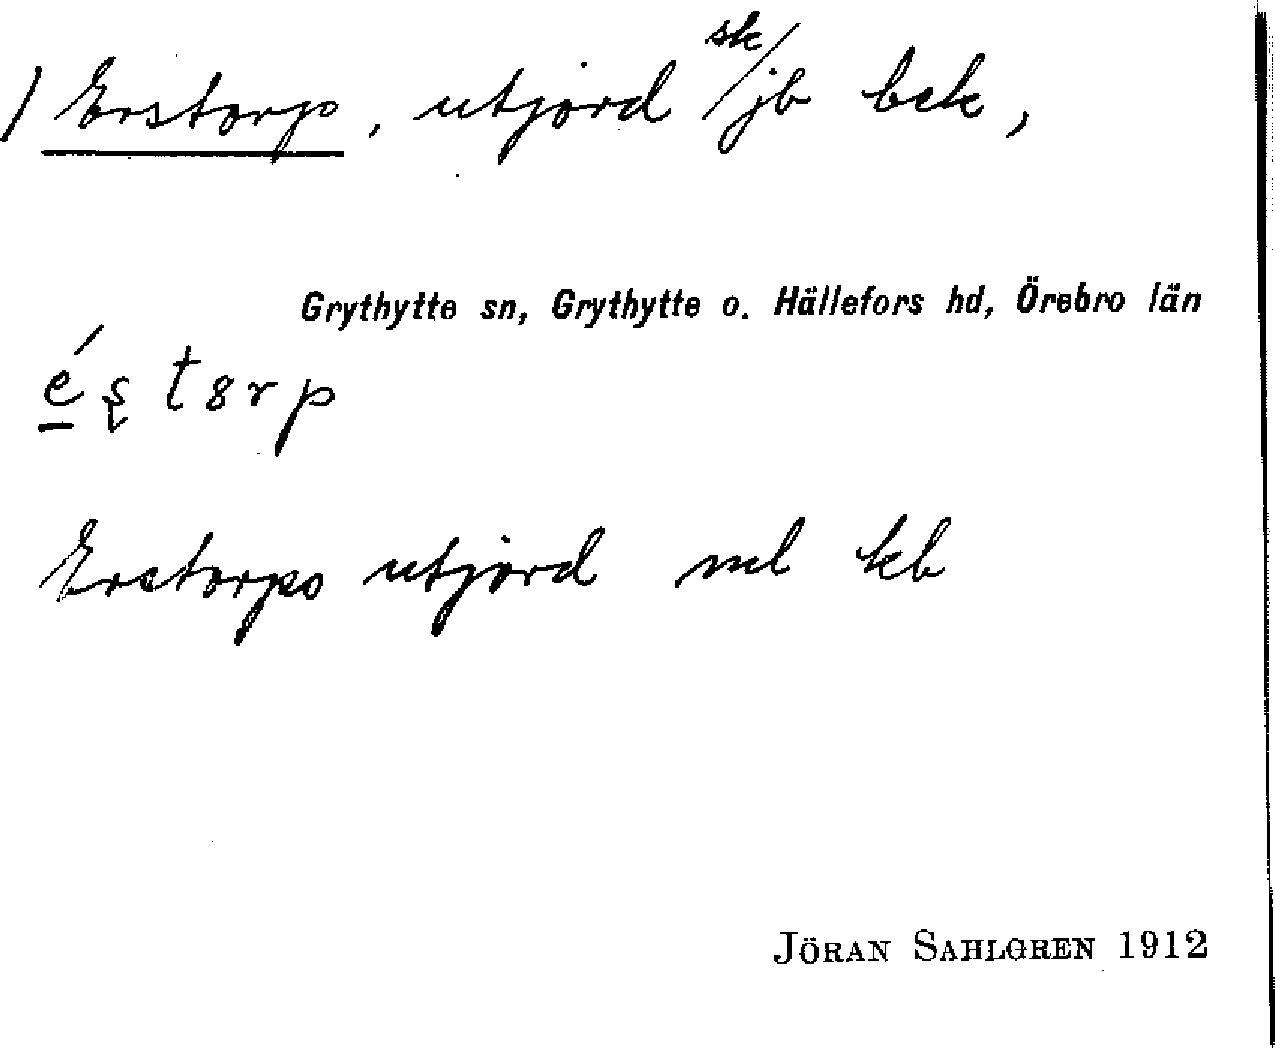 1) Erstorp, utjord sk/jb bek,
Grythytte sn, Grythytte o. Hällefors hd, Örebro län
é ş t 8 r p
Erstorps utjord ml kb
JÖRAN SAHLGREN 1912